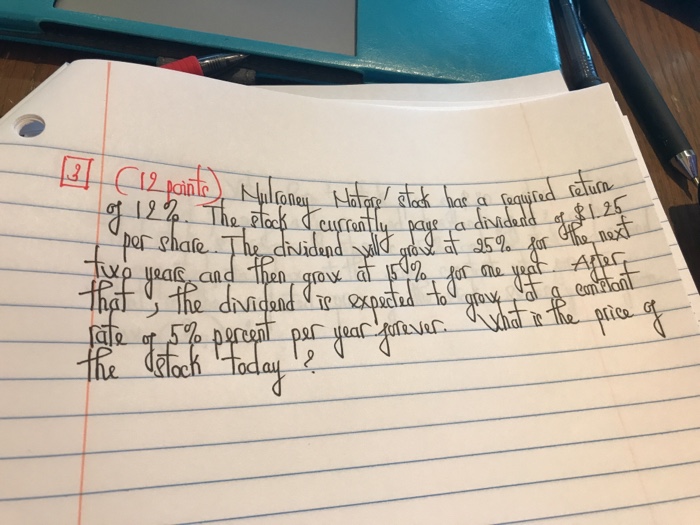 3 (12 points) Mulroney Motors' stock has a required return
of 12%. The stock currently pays a dividend of $1.25
per share. The dividend will grow at 25% for the next
two years and then grow at 15% for one year. After
that, the dividend is expected to grow at a constant
rate of 5% percent per year forever. What is the price of
the stock today?